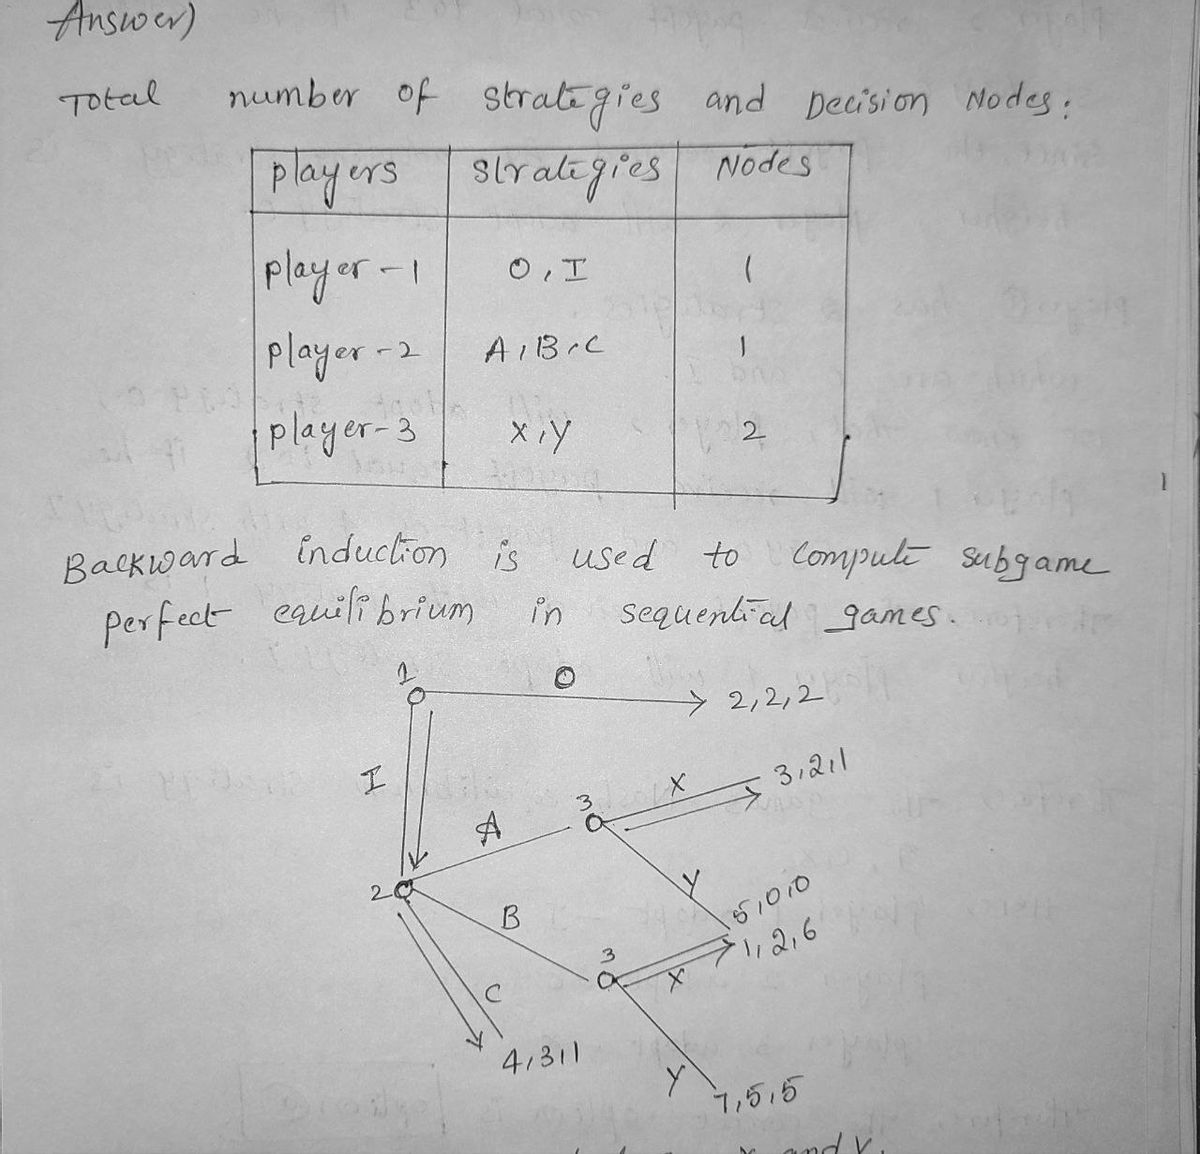 Answer)
Total number of strategies and Decision Nodes:
players strategies Nodes
player-1 O, I 1
player-2 A, B, C 1
player-3 X, Y 2
Backward induction is used to compute subgame
perfect equilibrium in sequential games.
1 O 2,2,2
I
X 3,2,1
3
A
Y
2
5,0,0
B
1,2,6
3
X
C
4,3,1
Y
7,5,5
and Y.